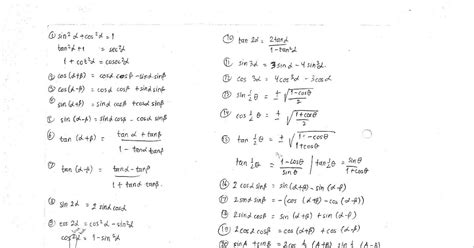 ① sin²α + cos²α = 1
tan²α + 1 = sec²α
1 + cot²α = cosec²α
② cos(α+β) = cosα cosβ − sinα sinβ
③ cos(α−β) = cosα cosβ + sinα sinβ
④ sin(α+β) = sinα cosβ + cosα sinβ
⑤ sin(α−β) = sinα cosβ − cosα sinβ
⑥ tan(α+β) = (tanα + tanβ)/(1 − tanα tanβ)
⑦ tan(α−β) = (tanα − tanβ)/(1 + tanα tanβ)
⑧ sin2α = 2 sinα cosα
⑨ cos2α = cos²α − sin²α
cos2α = 1 − sin²α
⑩ tan2α = 2tanα/(1 − tan²α)
⑪ sin3α = 3sinα − 4sin³α
⑫ cos3α = 4cos³α − 3cosα
⑬ sin ½θ = ± √((1−cosθ)/2)
⑭ cos ½θ = ± √((1+cosθ)/2)
⑮ tan ½θ = ± √((1−cosθ)/(1+cosθ))
tan ½θ = (1−cosθ)/sinθ | tan ½θ = sinθ/(1+cosθ)
⑯ 2cosα sinβ = sin(α+β) − sin(α−β)
⑰ 2sinα sinβ = −(cos(α+β) − cos(α−β))
⑱ 2sinα cosβ = sin(α+β) + sin(α−β)
⑲ 2cosα cosβ = cos(α+β) + cos(α−β)
⑳ sinA + sinB = 2 sin ½(A+B)